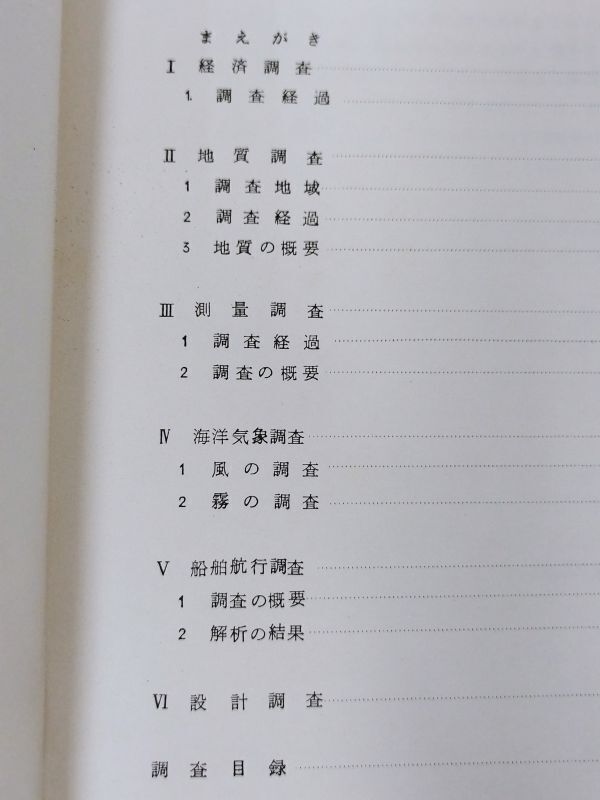 まえがき
Ⅰ 経済調査
1. 調査経過
Ⅱ 地質調査
1 調査地域
2 調査経過
3 地質の概要
Ⅲ 測量調査
1 調査経過
2 調査の概要
Ⅳ 海洋気象調査
1 風の調査
2 霧の調査
Ⅴ 船舶航行調査
1 調査の概要
2 解析の結果
Ⅵ 設計調査
調査目録